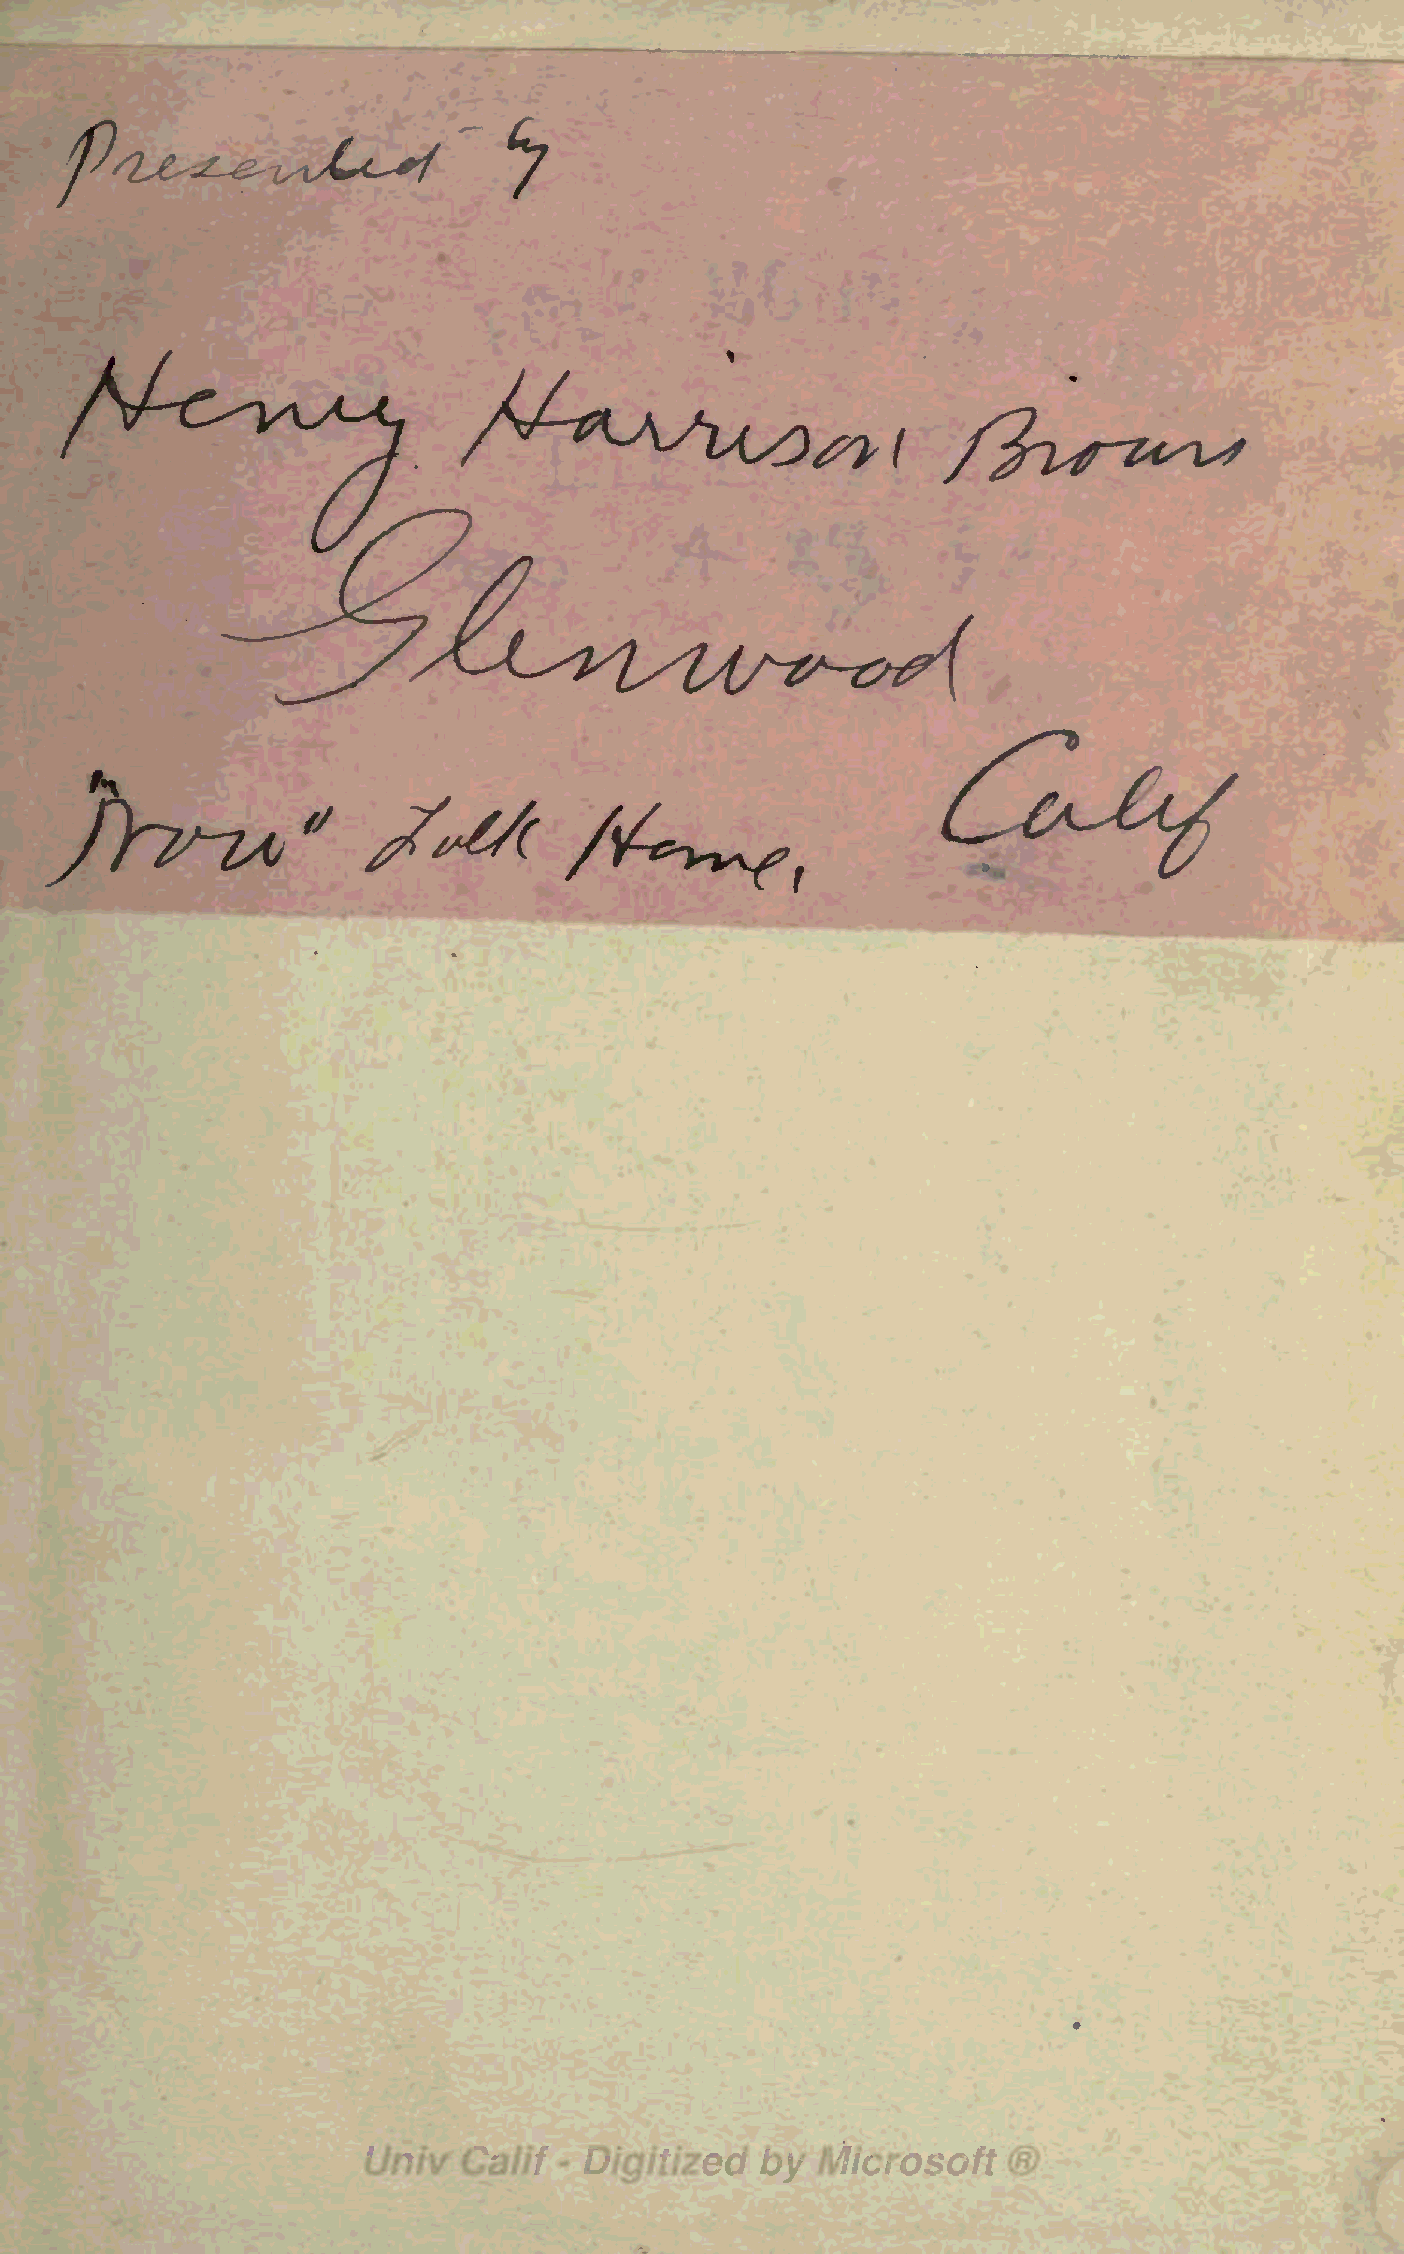 Presented by
Henry Harrison Brown
Glenwood
Calif
"Now" Folk Home,
Univ Calif - Digitized by Microsoft ®